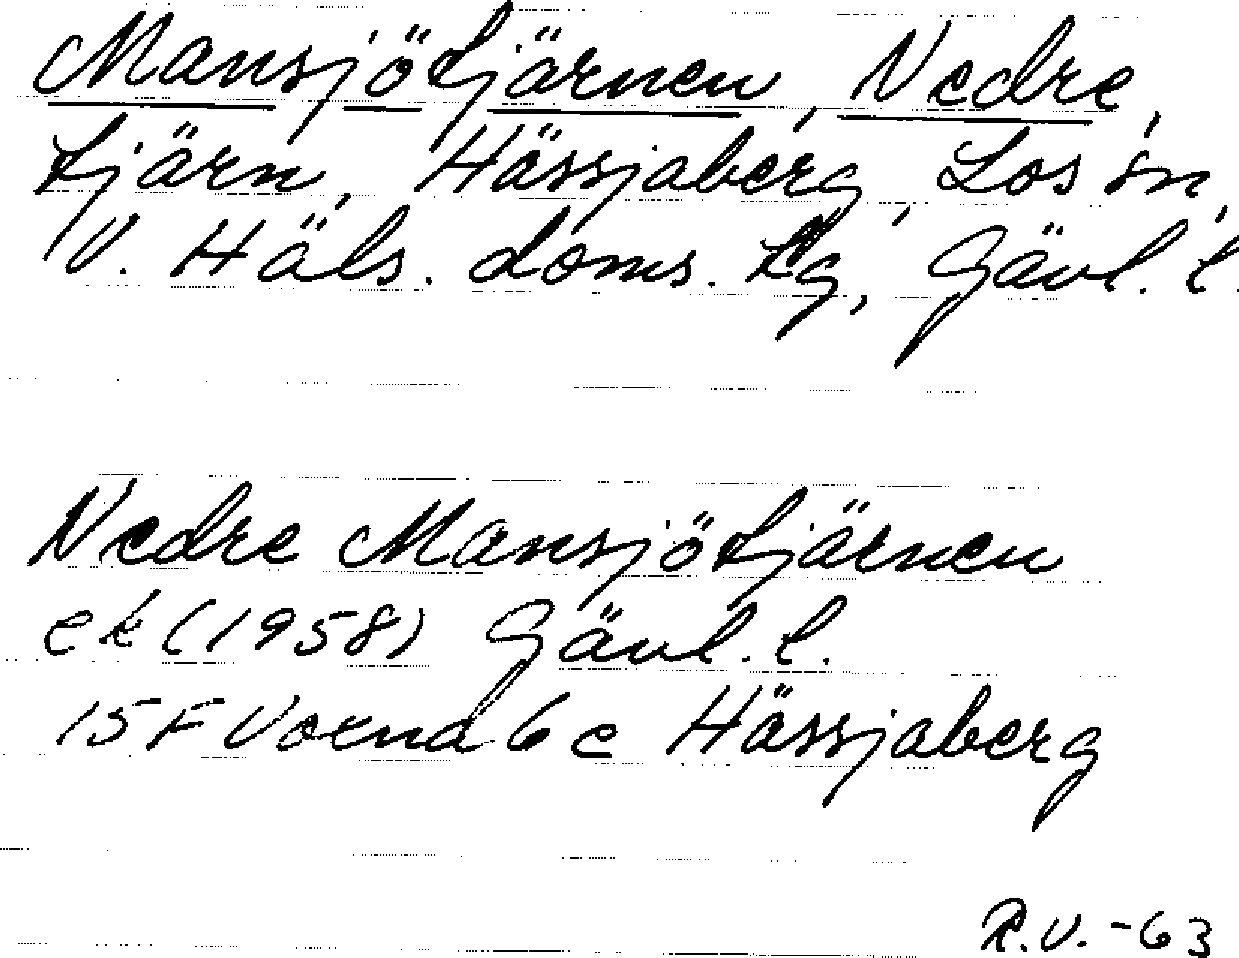 Mansjötjärnen, Nedre,
tjärn, Hässjaberg, Los sn,
V. Häls. doms. tg, Gävl. l.
Nedre Mansjötjärnen
ek (1958) Gävl. l.
15F Voxna 6c Hässjaberg
R.V. -63